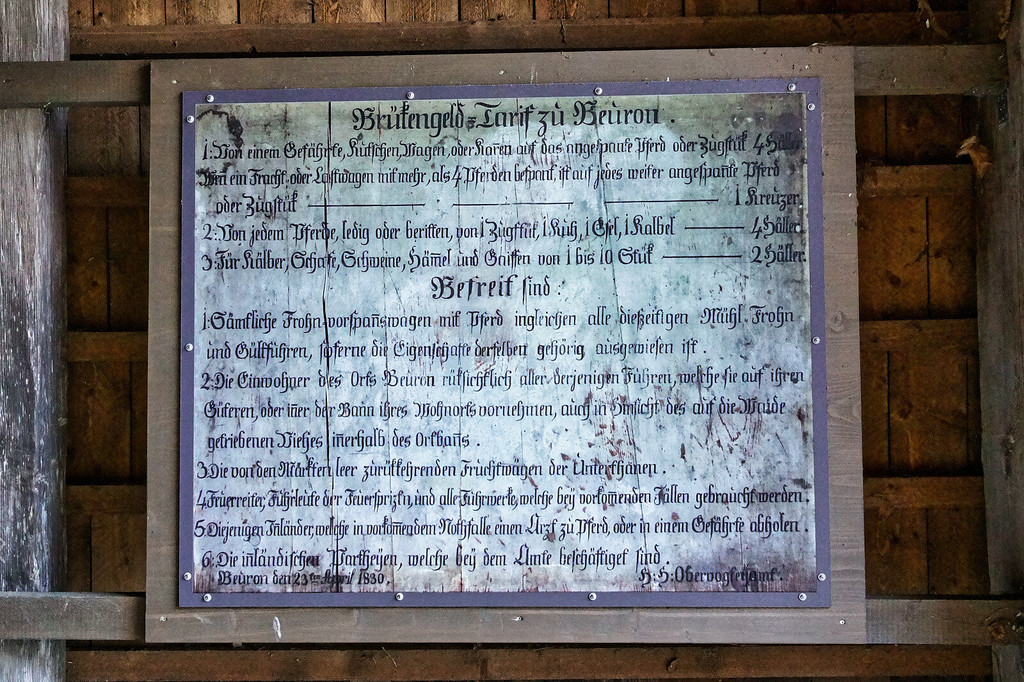 Brükengeld-Tarif zu Beuron.
1: Von einem Gefährte, Kutschen, Wagen, oder Karen auf das angespante Pferd oder Zugstük 4 Häller
Wen ein Fracht- oder Lastwagen mit mehr, als 4 Pferden bespant, ist auf jedes weiter angespante Pferd
oder Zugstük — 1 Kreuzer.
2: Von jedem Pferde, ledig oder beritten, von 1 Zugstük, 1 Kuh, 1 Esel, 1 Kalbel — 4 Häller.
3: Für Kälber, Schafe, Schweine, Ham̄el und Gaissen von 1 bis 10 Stük — 2 Häller.
Befreit sind:
1: Sämtliche Frohn-vorspan̄swagen mit Pferd ingleichen alle dießeitigen Mühl. Frohn
und Gültführen, soferne die Eigenschafte derselben gehörig ausgewiesen ist.
2: Die Einwohner des Orts Beuron rüksichtlich aller derjenigen Führen, welche sie auf ihren
Güteren, oder in̄er der Bann ihres Wohnorts vornehmen, auch in Hinsicht des auf die Waide
getriebenen Viehes in̄erhalb des Ortbañs.
3: Die von den Märkten leer zurükkehrenden Fruchtwägen der Unterthanen.
4: Feuerreiter, Führleute der Feuersprizen, und alle Führwerke, welche bey vorkom̄enden Fällen gebraucht werden.
5: Diejenigen Inländer, welche in vorkom̄endem Nothfalle einen Arzt zu Pferd, oder in einem Gefährte abholen.
6: Die inländischen Partheyen, welche bey dem Amte beschäftiget sind.
Beuron den 23ten April 1830. H: H: Obervogteiamt.